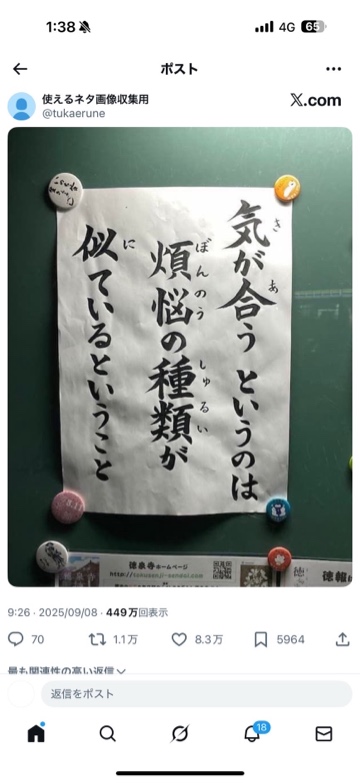 1:38
4G 65
ポスト
使えるネタ画像収集用
@tukaerune
X.com
気が合うというのは
き
あ
煩悩の種類が
ぼんのう
しゅるい
似ているということ
に
徳泉寺ホームページ
9:26・2025/09/08・449万回表示
70
1.1万
8.3万
5964
最も関連性の高い返信
返信をポスト
18